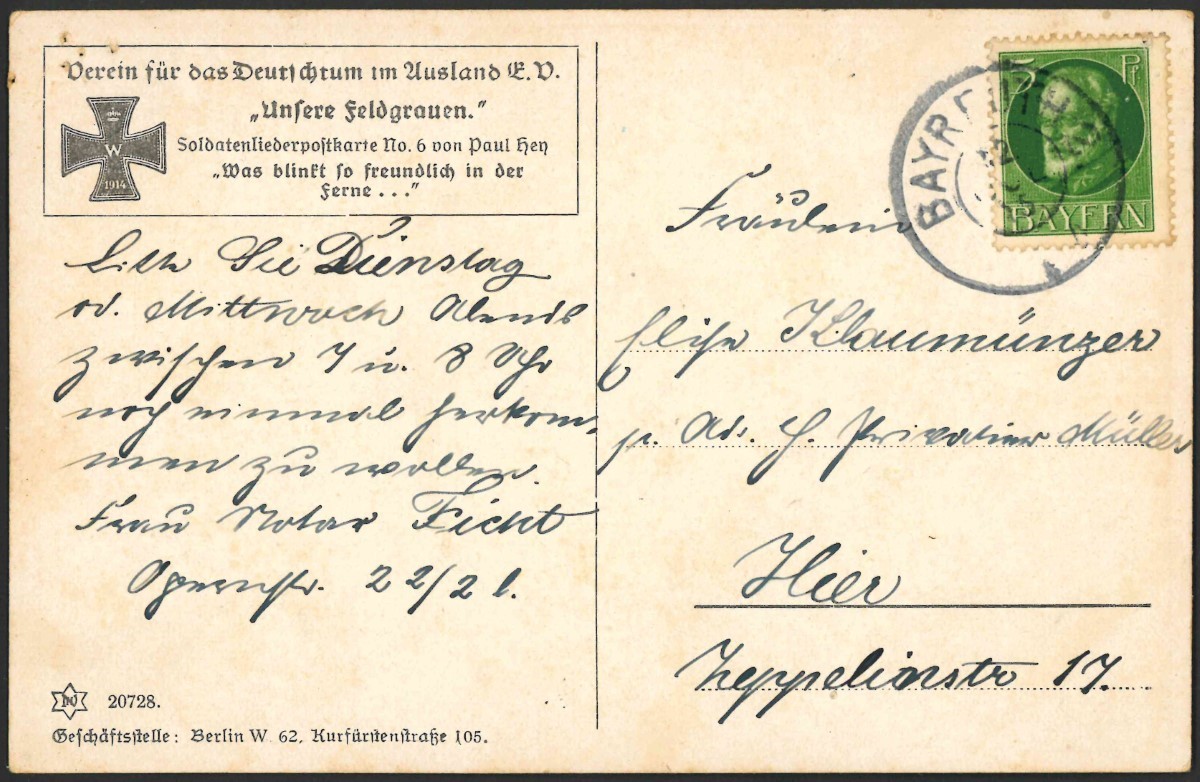 Verein für das Deutschtum im Ausland E. V.
„Unsere Feldgrauen."
Soldatenliederpostkarte No. 6 von Paul Hey
„Was blinkt so freundlich in der
Ferne . . ."
W
1914
Bitte Sie Dienstag
od. Mittwoch Abends
zwischen 7 u. 8 Uhr
noch einmal herkom-
men zu wollen.
Frau Notar Ficht
Opernstr. 22/2 l.
20728.
Geschäftsstelle: Berlin W. 62, Kurfürstenstraße 105.
5 Pf
BAYERN
BAYR
Fräulein
Elise Klaumünzer
p. Ad. H. Privatier Müller
Hier
Zeppelinstr 17.